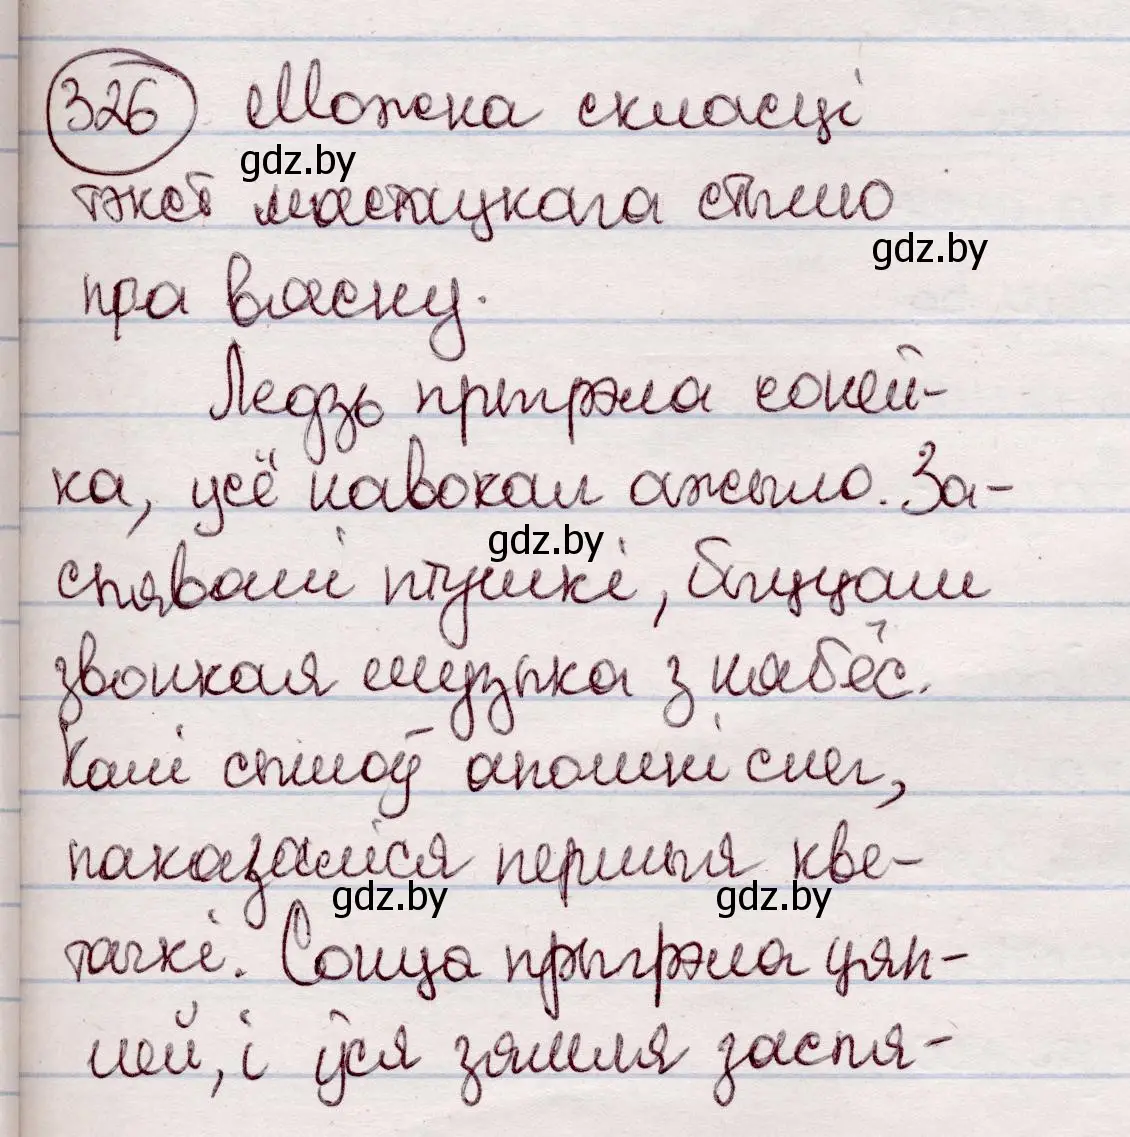 326 Можна скласці
gdz.by
тэкст мастацкага стылю
gdz.by
пра вясну.
Ледзь прыгрэла соней-
ка, усё навокал ажыло. За-
gdz.by
спявалі птушкі, быццам
звонкая музыка з нябёс.
Калі сплыў апошні снег,
паказаліся першыя кве-
gdz.by gdz.by
тачкі. Сонца прыгрэла цяп-
лей, і ўся зямля заспя-